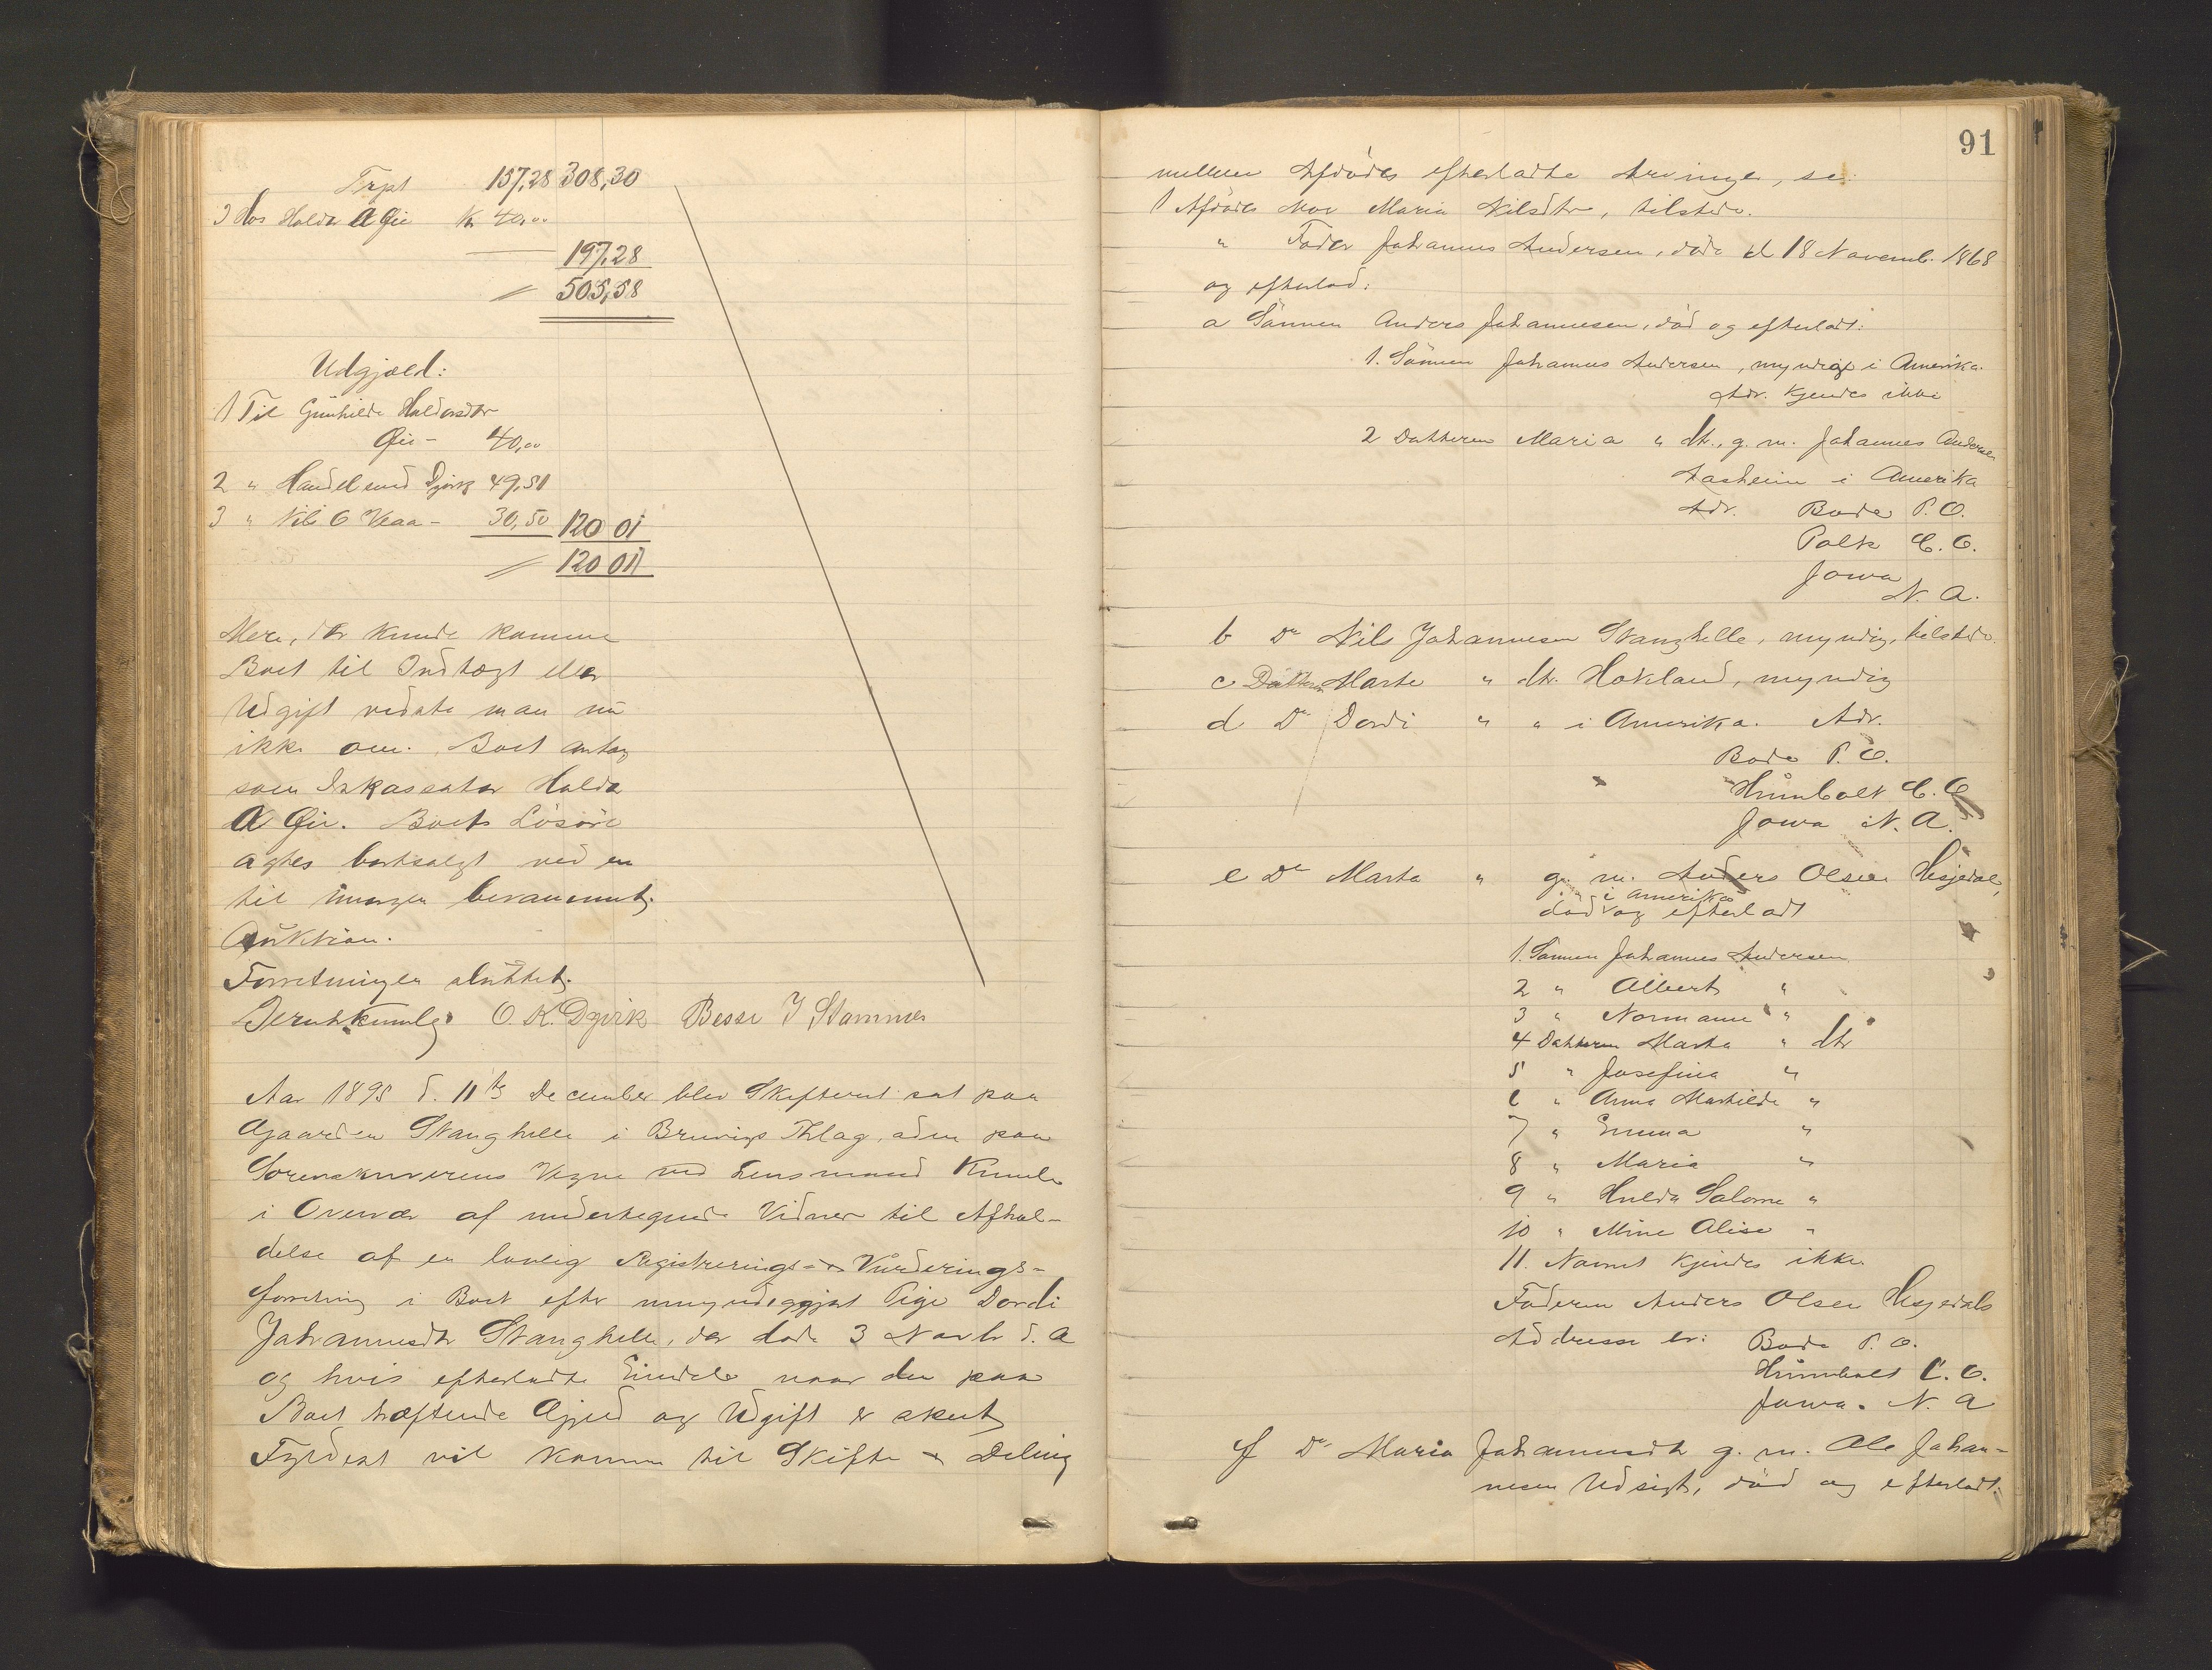 Trpt 157,28 308,30
3 Hos Haldor A Øie Kr 40,00
197,28
505,58
Udgjæld:
1 Til Gunhilde Haldorsdtr
Øie - 40,00
2 " Handelsmd Dyvik 49,51
3 " Nils O Veaa - 30,50 120 01
120 01
Mere, der kunde komme
Boet til Indtægt eller
Udgift vidste man nu
ikke om. Boet antog
som Inkassator Haldor
A Øie. Boets Løsøre
agtes bortsolgt ved en
til imorgen berammet
Auktion.
Forretningen sluttet.
O. K. Dyvik Besse J Stamnes
Aar 1895 d. 11te December blev Skifteret sat paa
Gaarden Stanghelle i Bruvigs Thlag, adm paa
Sorenskriverens Vegne ved Lensmand
i Overvær af undertegnede Vidner til Afhol-
delse af en lovlig Registrerings- og Vurderings-
forretning i Boet efter umyndiggjort Pige Dordi
Johannesdtr Stanghelle, der døde 3 Novbr d. A
og hvis efterladte Eiendele naar den paa
Boet hæftende Gjæld og Udgift er skeet
Fyldest vil komme til Skifte og Deling
91
mellem Afdødes efterladte Arvinger, se:
1 Afdødes Mor Maria Nilsdtr, tilstede.
" Fader Johannes Andersen, døde d 18 Novemb. 1868
og efterlod:
a Sønnen Anders Johannesen, død og efterladt:
1. Sønnen Johannes Andersen, myndig i Amerika.
Adr. kjendes ikke
2 Datteren Maria " dtr., g. m. Johannes Andersen
i Amerika
Adr. Bode P. O.
Polk C. O.
Jowa
N. A.
b Do Nils Johannesen Stanghelle, myndig, tilstede.
c Datteren Marte " dtr. Hokland, myndig
d Do Dordi " " i Amerika. Adr.
Bode P. O.
Humbolt C. O
Jowa N. A.
e Do Marta " g. m. Anders Olsen Hesjedal,
i Amerika
død og efterladt
1. Sønnen Johannes Andersen
2 " Albert "
3 " Normann "
4 Datteren Marta " dtr
5 " Josefina "
6 " Anna Mathilde "
7 " Emma "
8 " Maria "
9 " Hulda Salome "
10 " Mine Alise "
11. Navnet kjendes ikke
Faderen Anders Olsen Hesjedals
Addresse er: Bode P. O.
Humbolt C. O.
Jowa. N. A
f Do Maria Johannesdtr g. m. Ole Johan-
nesen Udsigt, død og efterladt: